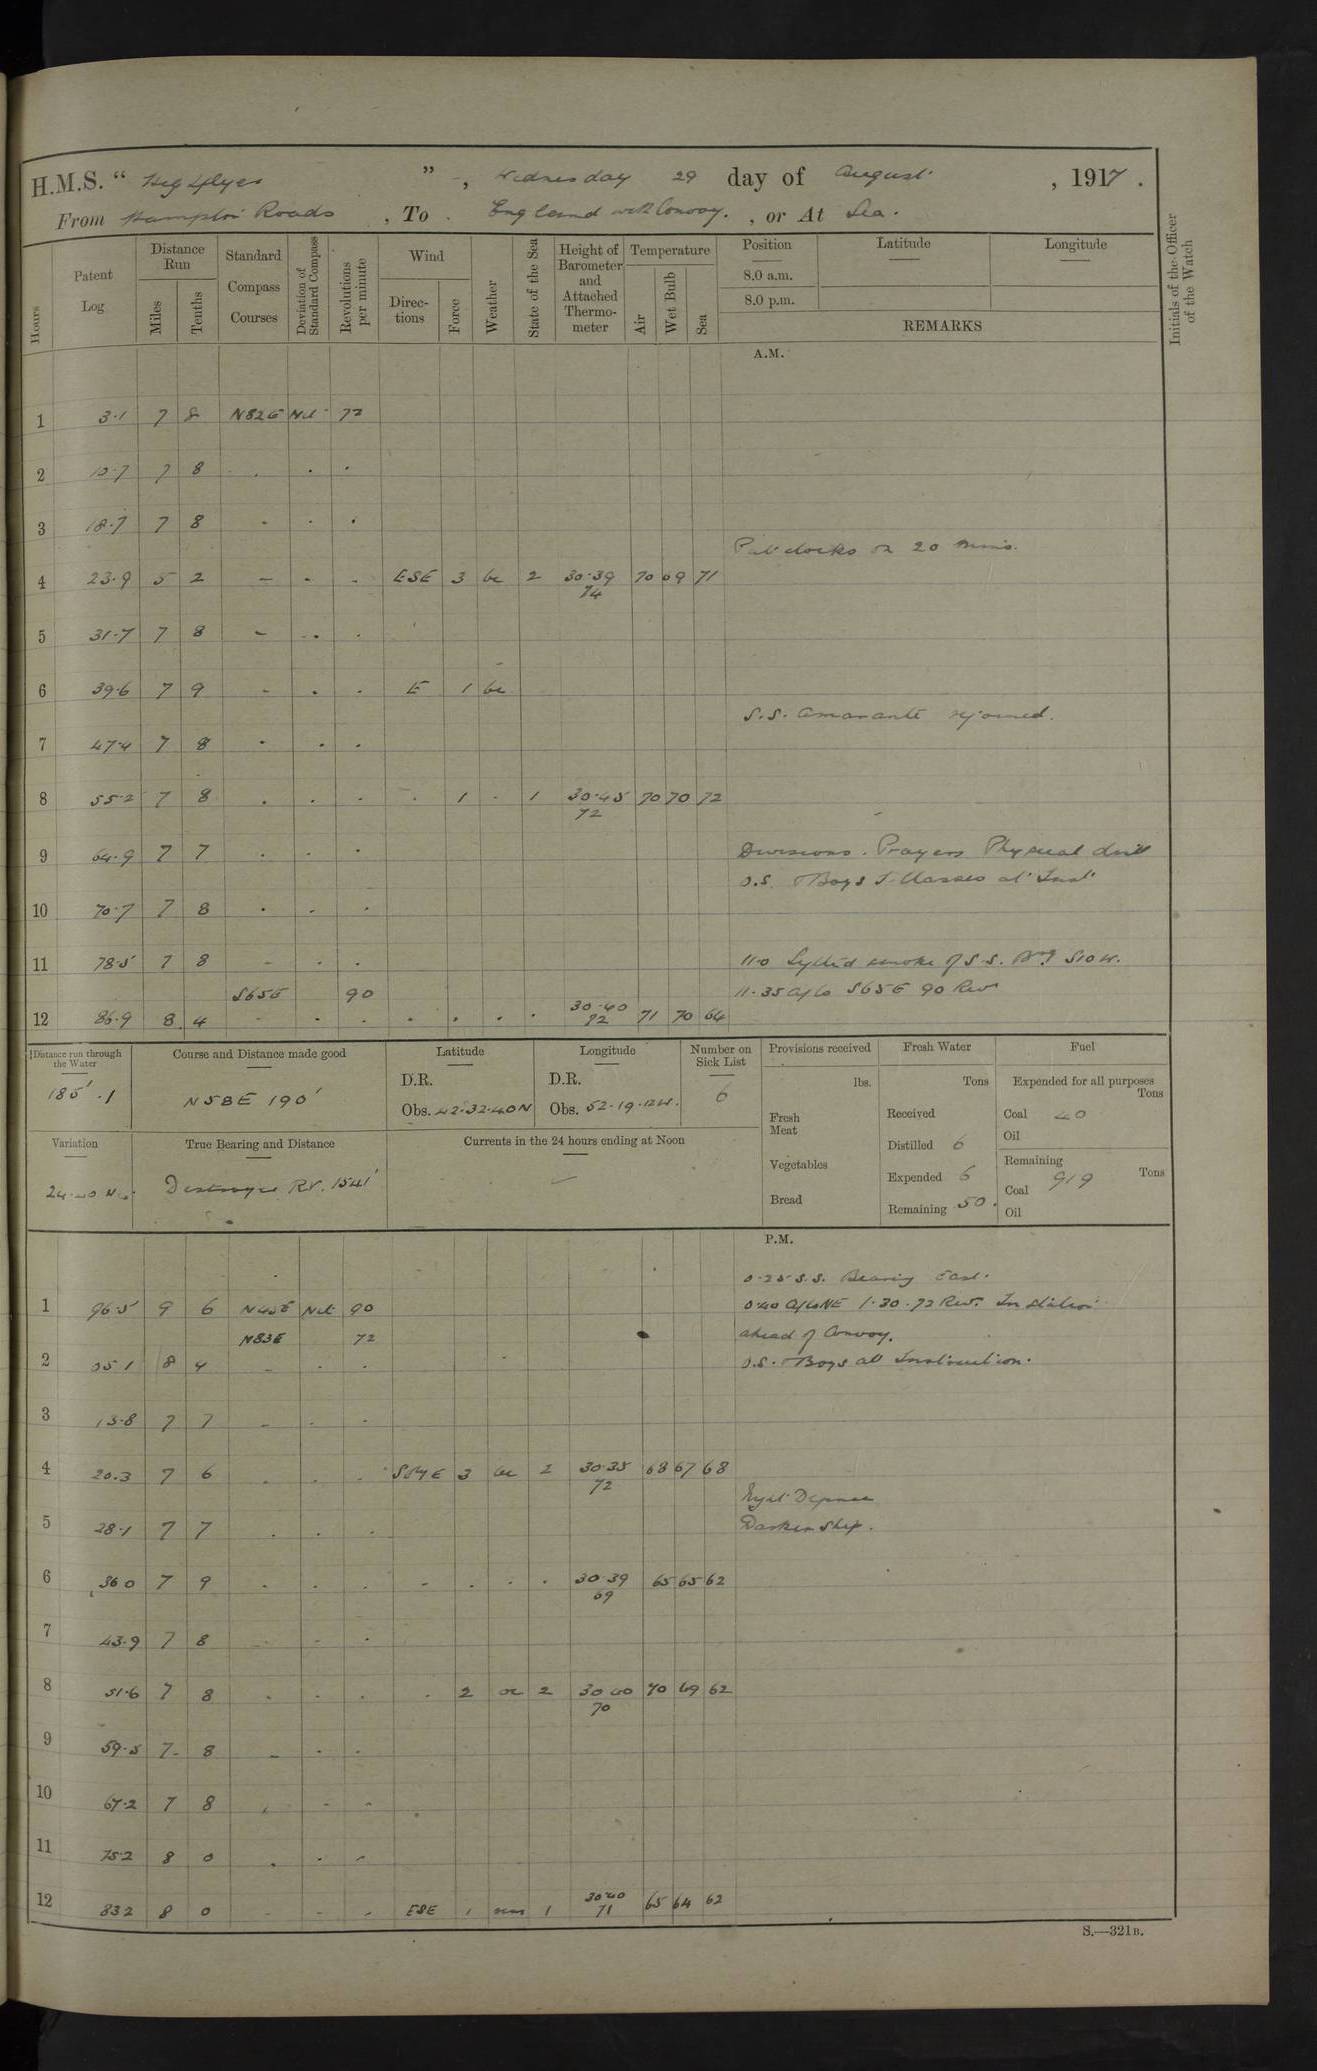 H.M.S. “ Highflyer ” , Wednesday 29 day of August , 1917 .
From Hampton Roads , To England with Convoy. , or At Sea.
Hours
Patent Log
Distance Run
Miles
Tenths
Standard Compass Courses
Deviation of Standard Compass
Revolutions per minute
Wind
Directions
Force
Weather
State of the Sea
Height of Barometer and Attached Thermometer
Temperature
Air
Wet Bulb
Sea
Position
8.0 a.m.
8.0 p.m.
Latitude
Longitude
REMARKS
Initials of the Officer of the Watch
A.M.
1 3.1 7 8 N82E Nil 72
2 10.7 7 8 . . .
3 18.7 7 8 - . .
Put clocks on 20 mins.
4 23.9 5 2 - - - ESE 3 bc 2 30.39 70 69 71
74
5 31.7 7 8 - . .
6 39.6 7 9 - . . E 1 bc
S.S. Amarante rejoined.
7 47.4 7 8 . . .
8 55.2 7 8 . . . . 1 . 1 30.45 70 70 72
72
9 64.9 7 7 . . . Divisions. Prayers Physical drill
O.S. Boys T. Classes at Inst
10 70.7 7 8 . . .
11 78.5 7 8 - . . 11.0 Sighted smoke of S.S. Brg S10W.
S65E 90 11.35 A/Co S65E 90 Revs
12 86.9 8 4 - . . . . . . 30.40 71 70 64
72
Distance run through the Water
185'.1
Course and Distance made good
N58E 190'
Latitude
D.R.
Obs. 42.32.40N
Longitude
D.R.
Obs. 52.19.12W.
Number on Sick List
6
Provisions received
lbs.
Fresh Meat
Vegetables
Bread
Fresh Water
Tons
Received
Distilled 6
Expended 6
Remaining 50.
Fuel
Expended for all purposes
Tons
Coal 40
Oil
Remaining
Tons
Coal 919
Oil
Variation
24.20 W.
True Bearing and Distance
Destroyer RV. 1541'
Currents in the 24 hours ending at Noon
P.M.
0.25 S.S. Bearing East.
1 96.5 9 6 N45E Nil 90 0.40 A/Co NE 1.30. 72 Revs. In station
N83E 72 ahead of Convoy.
2 05.1 8 4 - . . O.S. Boys at Instruction.
3 13.8 7 7 - . .
4 20.3 7 6 . . . 3 bc 2 30.35 68 67 68
72
Night Defence
5 28.1 7 7 . . . Darken Ship.
6 36.0 7 9 . . . - . . . 30.39 65 65 62
69
7 43.9 7 8 - - .
8 51.6 7 8 . . . . 2 oc 2 30.40 70 69 62
70
9 59.5 7 8 - . .
10 67.2 7 8 . - -
11 75.2 8 0 . . -
12 83.2 8 0 - - - ESE 1 1 30.40 65 64 62
71
S.—321B.